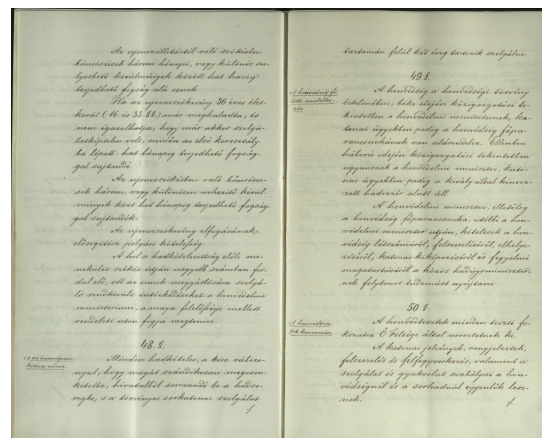 Az ujonczállitástól való szökésben
bünrészesek három hónapi, vagy különös su-
lyosbitó körülmények között hat havig
terjedhető fogság alá esnek
Ha az ujonczszökevény 36 éves élet-
korát (16 és 33 §§) már meghaladta, és
nem igazolhatja, hogy már akkor szolgá-
latképtelen volt, midőn az első korosztály-
ba lépett: hat hónapig terjedhető fogság-
gal sujtandó.
Az ujonczszökevényben való bünrésze-
sek három, vagy különösen nehezitő körül-
mények közt hat hónapig terjedhető fogság-
gal sujtandók.
Az ujonczszökevény elfogásának
elősegitése polgári kötelesség.
A hol a hadkötelezettség előli me-
nekülés szökés utján nagyobb számban for-
dul elő, ott az annak meggátlására szolgá-
ló rendkivüli intézkedéseket a honvédelmi
ministerium, a maga felelőssége mellett
rendeleti uton fogja megtenni.
48. §.
Minden hadköteles, a kire rábizo-
nyul, hogy magát szándékosan megcson-
kitotta, hivatalból sorozandó be a hadse-
regbe, s a törvényes sorkatonai szolgálat
tartamán felül két évig tartozik szolgálni.
49 §.
A honvédség fő-
A honvédség a honvédségi törvény
értelmében, béke idején közigazgatási te-
kintetben a honvédelmi ministernek, ka-
tonai ügyekben pedig a honvédség főpa-
rancsnokának van alárendelve. Ellenben
háború idején közigazgatási tekintetben
ugyancsak a honvédelmi minister, kato-
nai ügyekben pedig a király által kineve-
zett hadvezér alatt áll.
A honvédelmi minister, illetőleg
a honvédség főparancsnoka, utóbbi a hon-
védelmi minister utján, kötelesek a hon-
védség létszámáról, felszereléséről, elhelye-
zéséről, katonai kiképzéséről és fegyelmi
magatartásáról a közös hadügyminister-
nek folytonos tudomást nyujtani.
50 §
A honvédtisz-
tek kinevezése
A honvédtisztek minden tiszti fo-
kozatra Ő Felsége által neveztetnek ki.
A katonai jelvények, rangjelzések,
felszerelés és felfegyverkezés, valamint a
szolgálat és gyakorlat szabályai a hon-
védségnél és a sorhadnál egyenlők lesz-
nek.